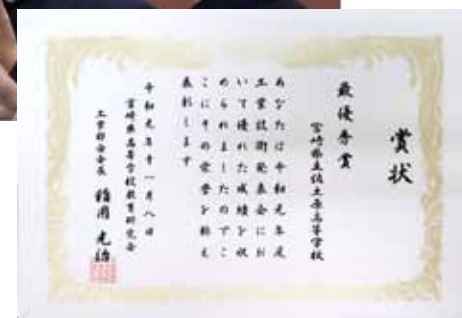 賞状
最優秀賞
宮崎県立佐土原高等学校
あなたは令和元年度
工業技術発表会にお
いて優れた成績を収
められましたのでこ
こにその栄誉を称え
表彰します
令和元年十一月八日
宮崎県高等学校教育研究会
工業部会会長